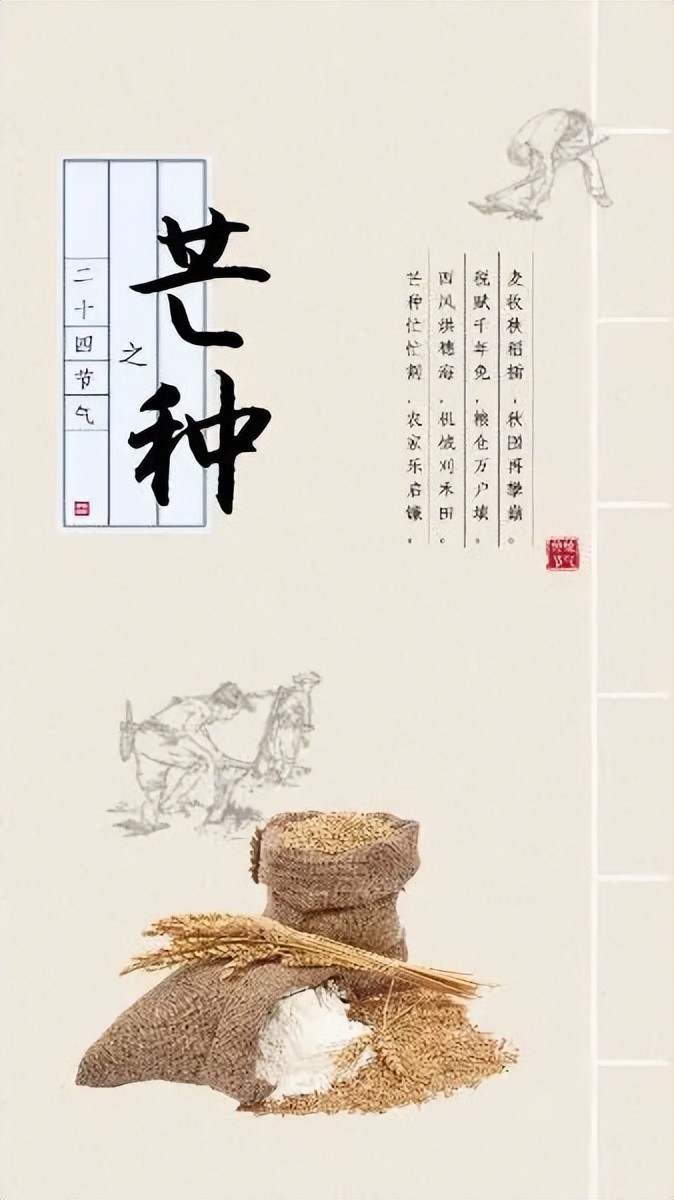 二十四节气
之
芒种
芒种忙忙割，农家乐启镰。
西风烘穗海，机械刈禾田。
税赋千年免，粮仓万户填。
麦收秧稻插，秋再攀巅。